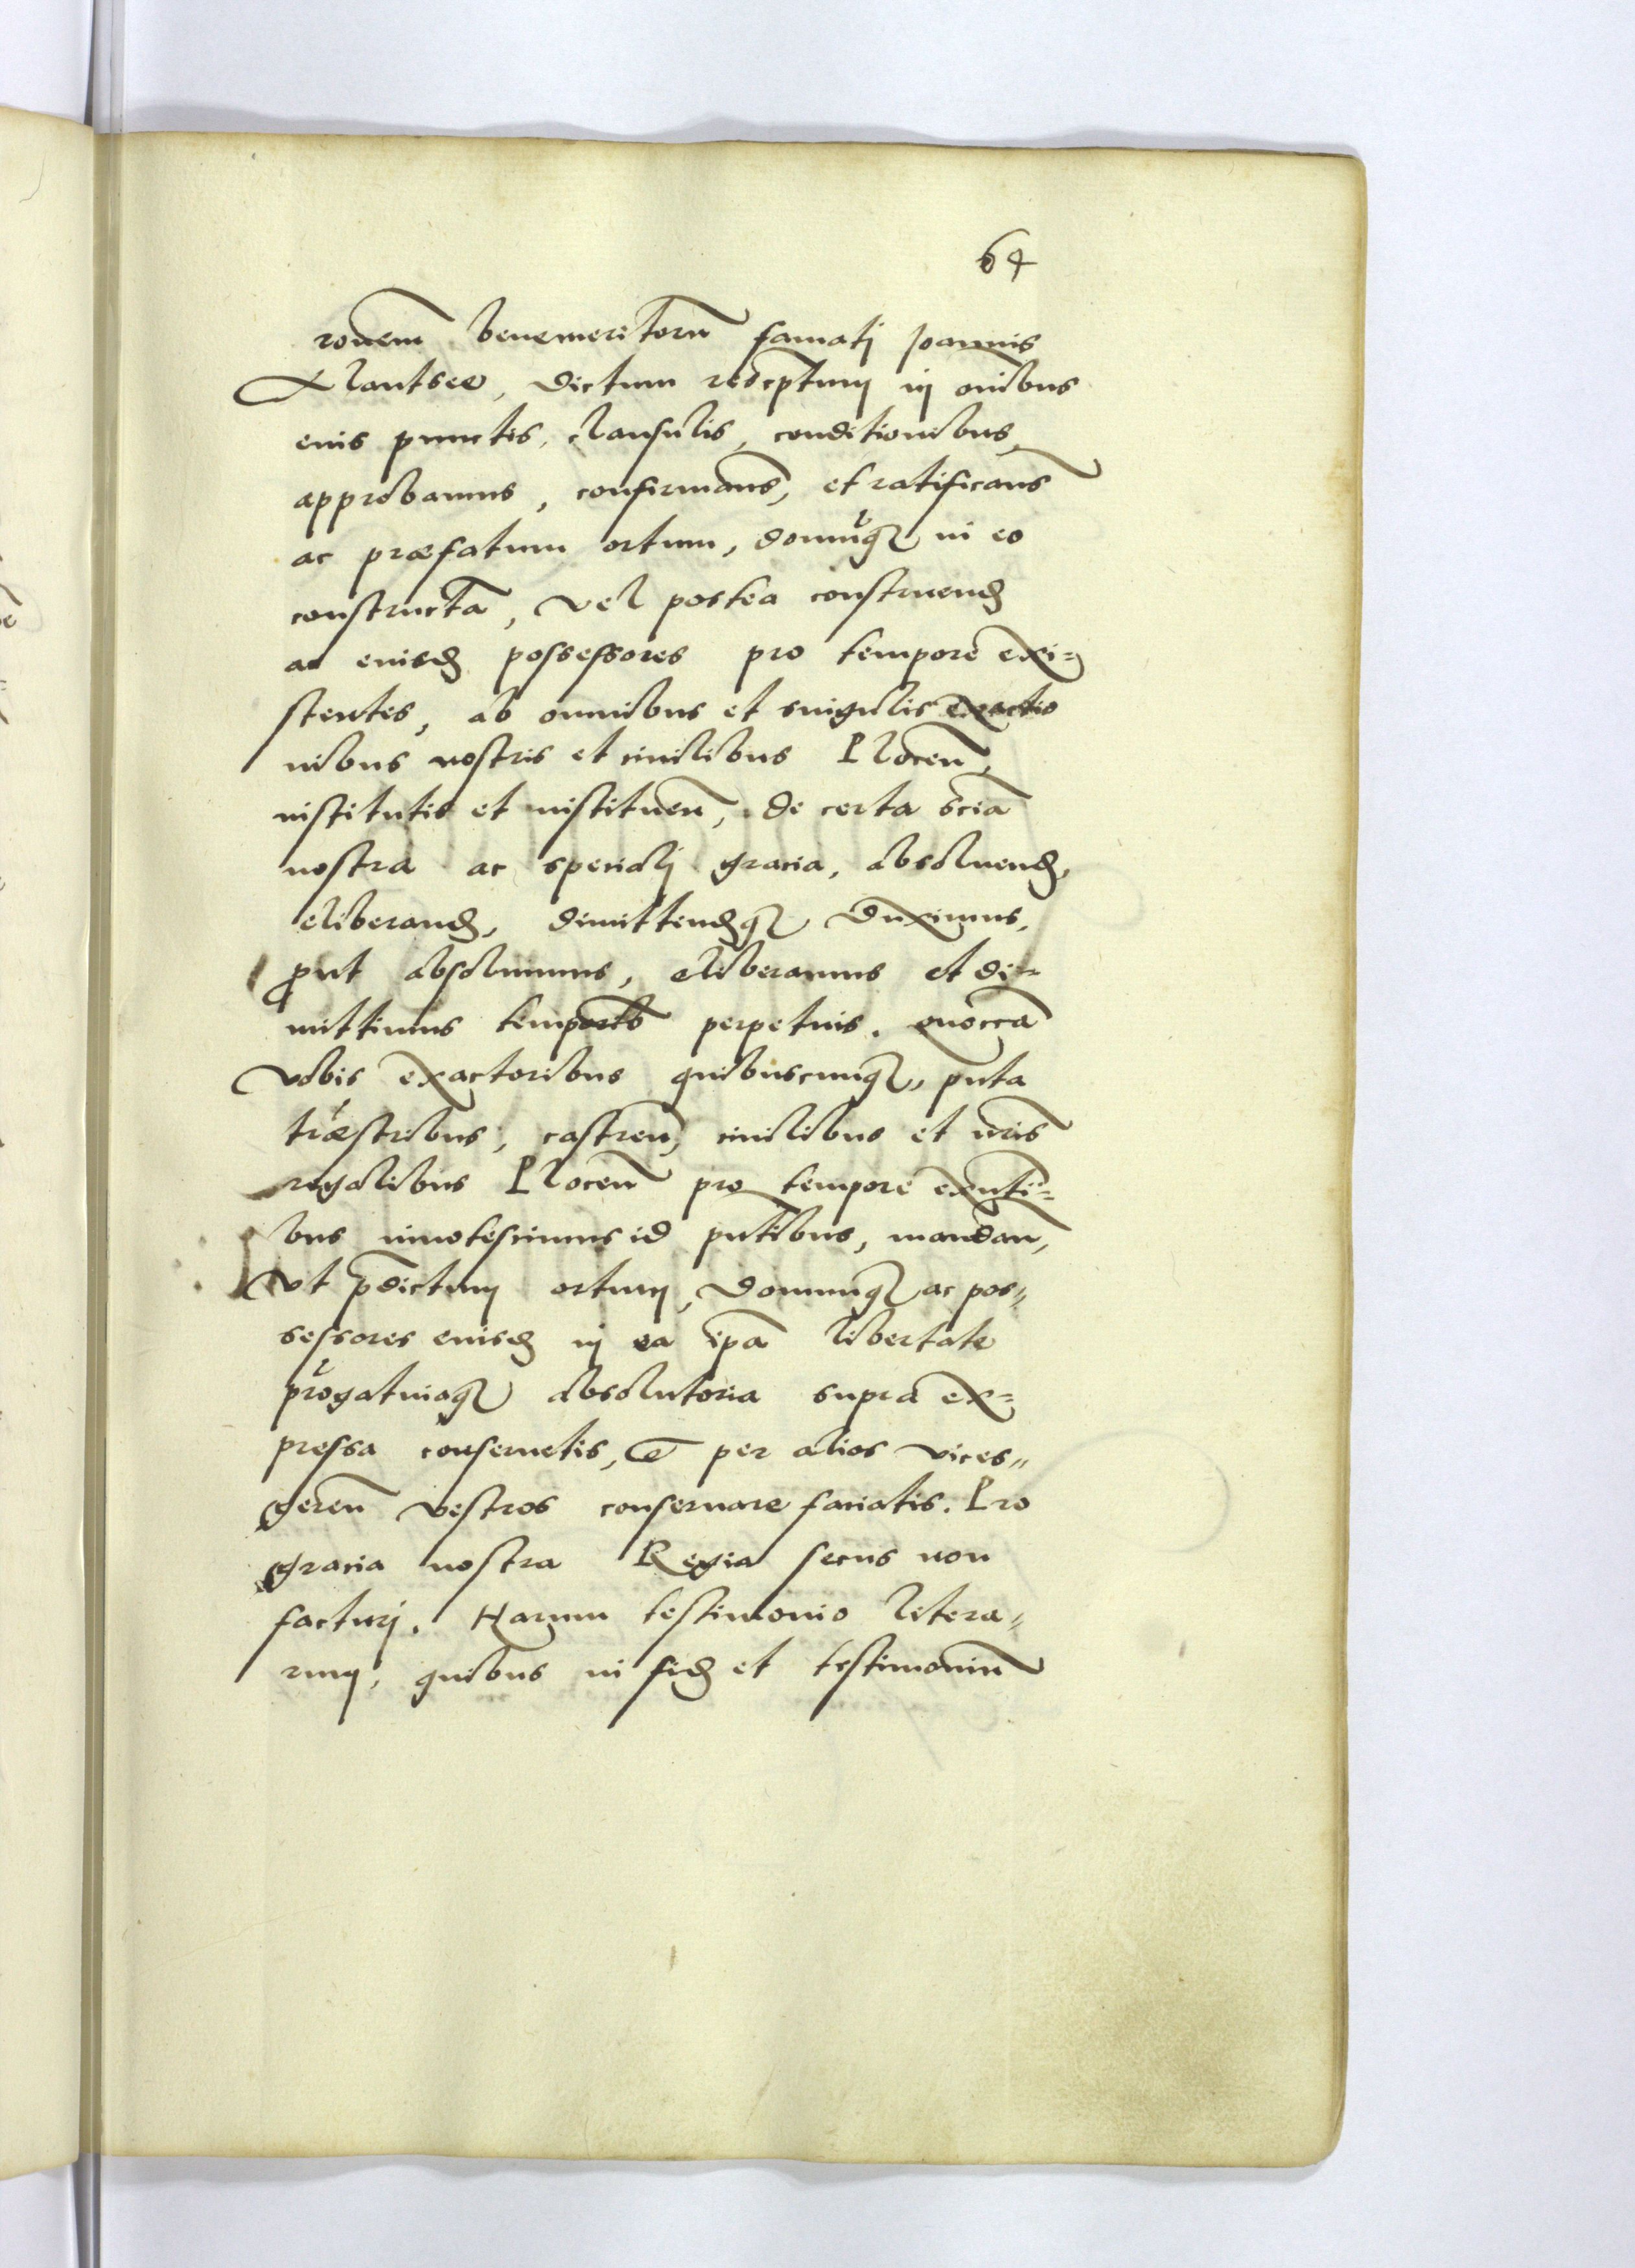 64
ronem̄ benemeritorū famatj Joannis
Klantsee, dictum rescptum in oīnibus
euis punctis, clausulis, conditionibus,
approbamus, confirmans̄, et ratificans̄
ac præfatum ortum, domūq₃ in eo
constructā, vel postea construend
ac euisd possessores pro tempore exi=
stentes, ab omnibus et singulis exactio
nibus nostris et ciuilibus Plocen̄,
institutis et instituen̄, de certa scīa
nostra ac specialj gracia, absoluend,
eliberand, dimittendq₃ duximus,
prout absoluimus, eliberamus et di=
mittimus temporib̄ perpetuis. quocca
vobis exactoribus quibuscunq₃, puta
træstribus, castren̄, ciuilibus et nr̄is
regalibus Plocen̄ pro tempore exn̄ti=
bus innotescimus id pn̄tibus, mandan̄,
Vt p̄dictum ortum, domumq₃ ac pos„
sessores euisd in ea ip̄a libertate
prrogatiuaq₃ absolutoria supra ex=
pressa conseruetis, et per alios vices„
geren̄ vestros conseruare faciatis. Pro
gracia nostra Regia secus non
facturj. Harum testimonio litera„
rum, quibus in fid et testimoniū